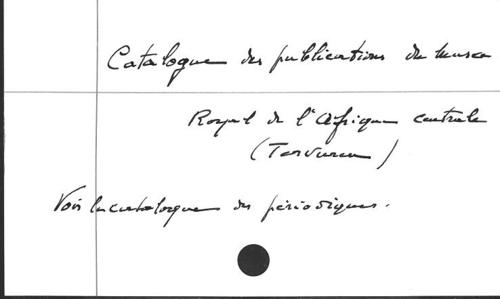 Catalogue des publications du Musée
Royal de l'Afrique centrale
(Tervuren)
Voir le catalogue des périodiques.